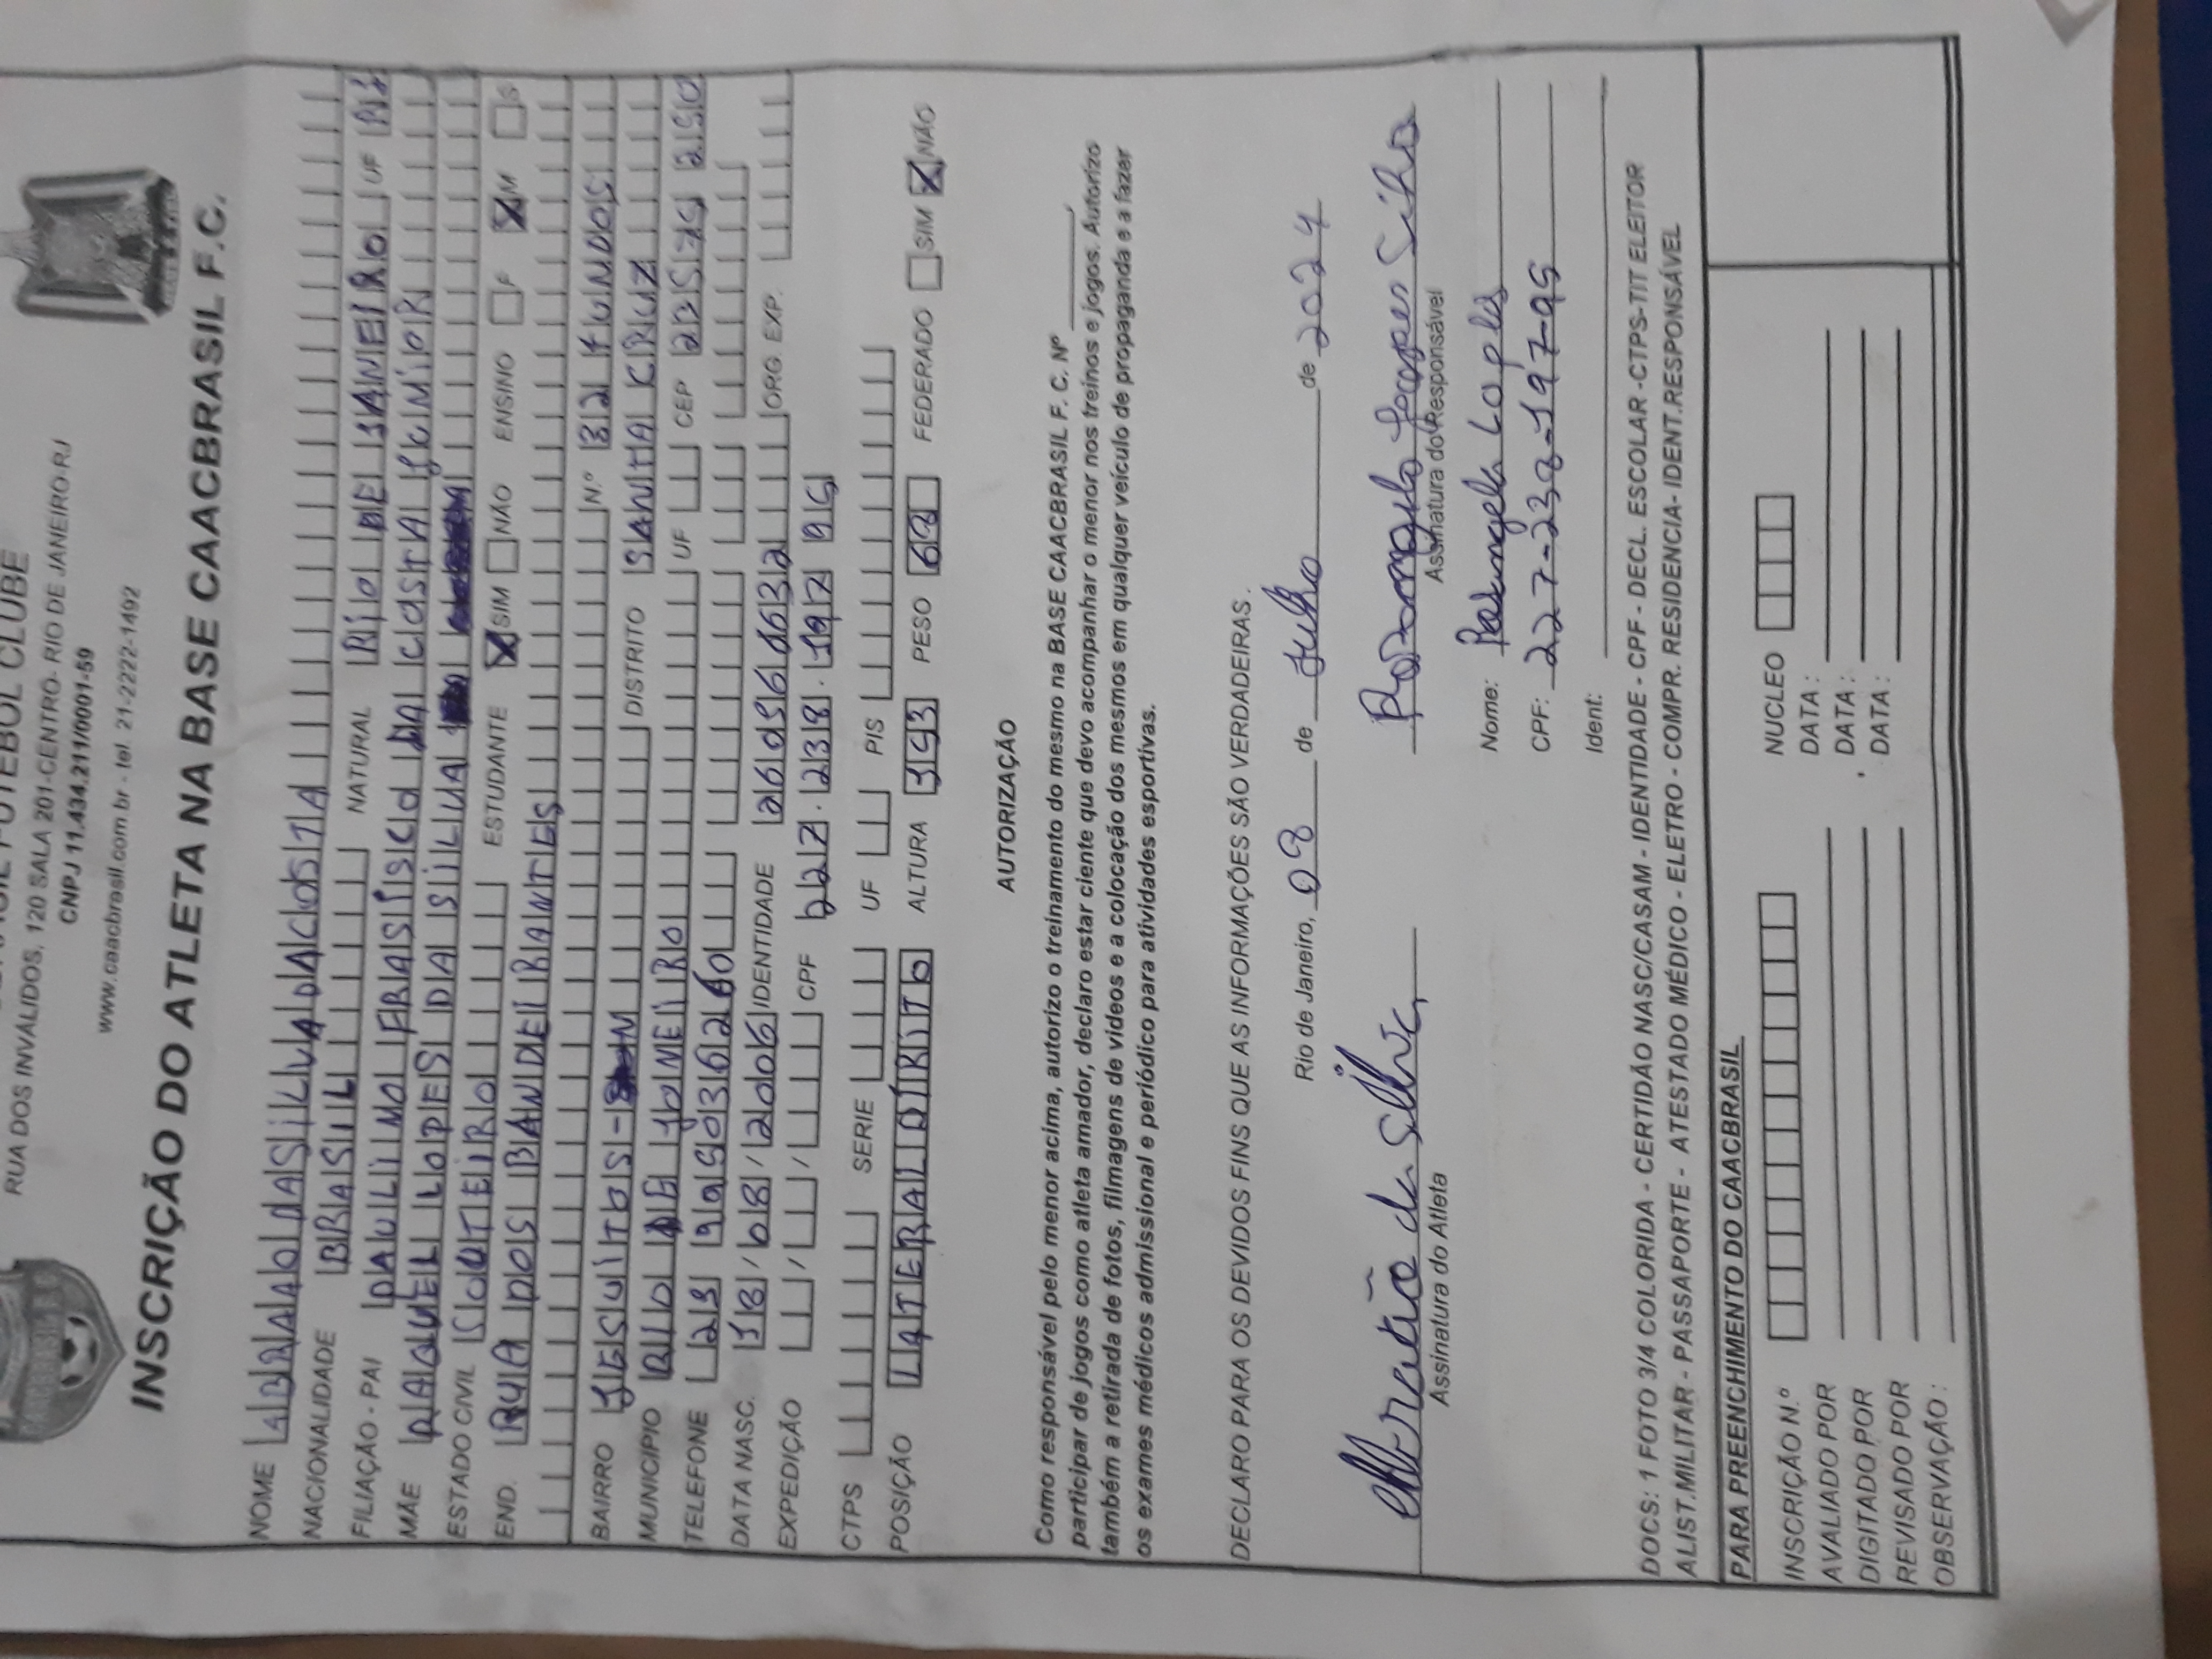 FUTEBOL CLUBE
RUA DOS INVALIDOS, 120 SALA 201-CENTRO- RIO DE JANEIRO-RJ
CNPJ 11.434.211/0001-59
www.caacbrasil.com.br - tel 21-2222-1492
INSCRIÇÃO DO ATLETA NA BASE CAACBRASIL F.C.
NOME ABRAAO DA SILVA DA COSTA
NACIONALIDADE BRASIL NATURAL RIO DE JANEIRO UF RJ
FILIAÇÃO - PAI PAULINO FRASISCO DA COSTA JUNIOR
MÃE RAQUEL LOPES DA SILVA
ESTADO CIVIL SOUTEIRO ESTUDANTE X SIM NÃO ENSINO F X M S
END. RUA DOS BANDEIRANTES
BAIRRO JESUITOS- N.º 32 FUNDOS
MUNICIPIO RIO DE JONEIRO DISTRITO SANTA CRUZ
TELEFONE 21 995036260 UF CEP 23575 250
DATA NASC. 18/08/2006 IDENTIDADE ORG. EXP.
EXPEDIÇÃO / / CPF 227.238.197 95
CTPS SERIE UF PIS
POSIÇÃO LATERAL DIRITO ALTURA PESO 68 FEDERADO SIM X NÃO
AUTORIZAÇÃO
Como responsável pelo menor acima, autorizo o treinamento do mesmo na BASE CAACBRASIL F. C. Nº ______,
participar de jogos como atleta amador, declaro estar ciente que devo acompanhar o menor nos treinos e jogos. Autorizo
também a retirada de fotos, filmagens de videos e a colocação dos mesmos em qualquer veículo de propaganda e a fazer
os exames médicos admissional e periódico para atividades esportivas.
DECLARO PARA OS DEVIDOS FINS QUE AS INFORMAÇÕES SÃO VERDADEIRAS.
Rio de Janeiro, 08 de Julho de 2024
Abraão da Silva
Assinatura do Atleta
Assinatura do Responsável
Nome: Rosangela Lopes
CPF: 227-238-197-95
Ident:
DOCS: 1 FOTO 3/4 COLORIDA - CERTIDÃO NASC/CASAM - IDENTIDADE - CPF - DECL. ESCOLAR -CTPS-TIT ELEITOR
ALIST.MILITAR - PASSAPORTE - ATESTADO MÉDICO - ELETRO - COMPR. RESIDENCIA- IDENT.RESPONSÁVEL
PARA PREENCHIMENTO DO CAACBRASIL
INSCRIÇÃO N.º NUCLEO
AVALIADO POR DATA :
DIGITADO POR DATA :
REVISADO POR DATA :
OBSERVAÇÃO :